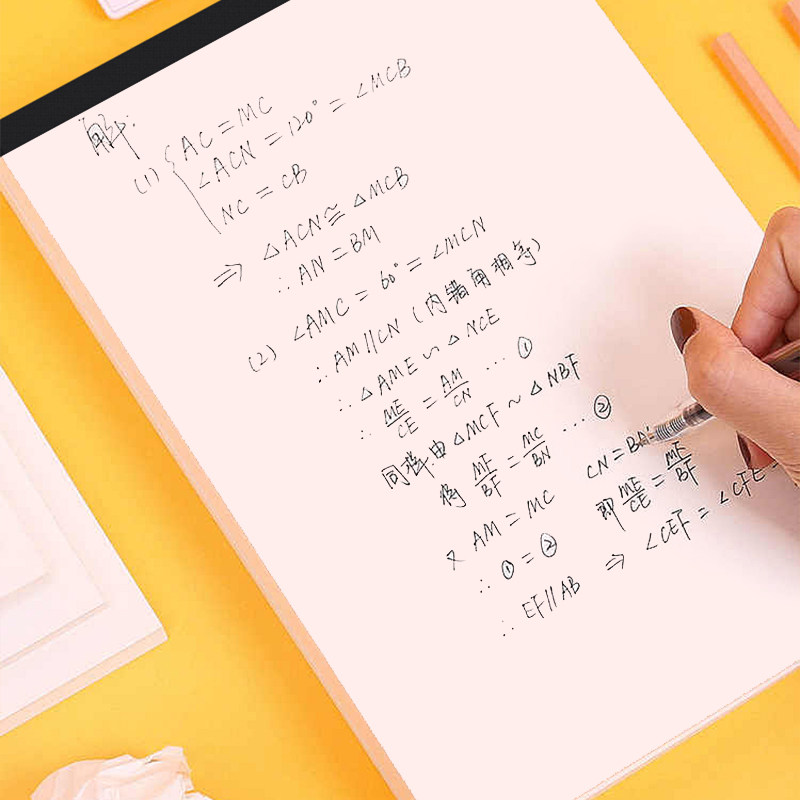 解:
(1) { AC = MC
∠ACN = 120° = ∠MCB
NC = CB
⇒ △ACN ≅ △MCB
∴ AN = BM
(2) ∠AMC = 60° = ∠MCN
∴ AM∥CN (内错角相等)
∴ △AME ∽ △NCE
∴ ME/CE = AM/CN … ①
同理由 △MCF ~ △NBF
得 MF/BF = MC/BN … ②
又 AM = MC CN = BN
∴ ① = ② 即 ME/CE = MF/BF
∴ EF∥AB ⇒ ∠CEF = ∠CFE =